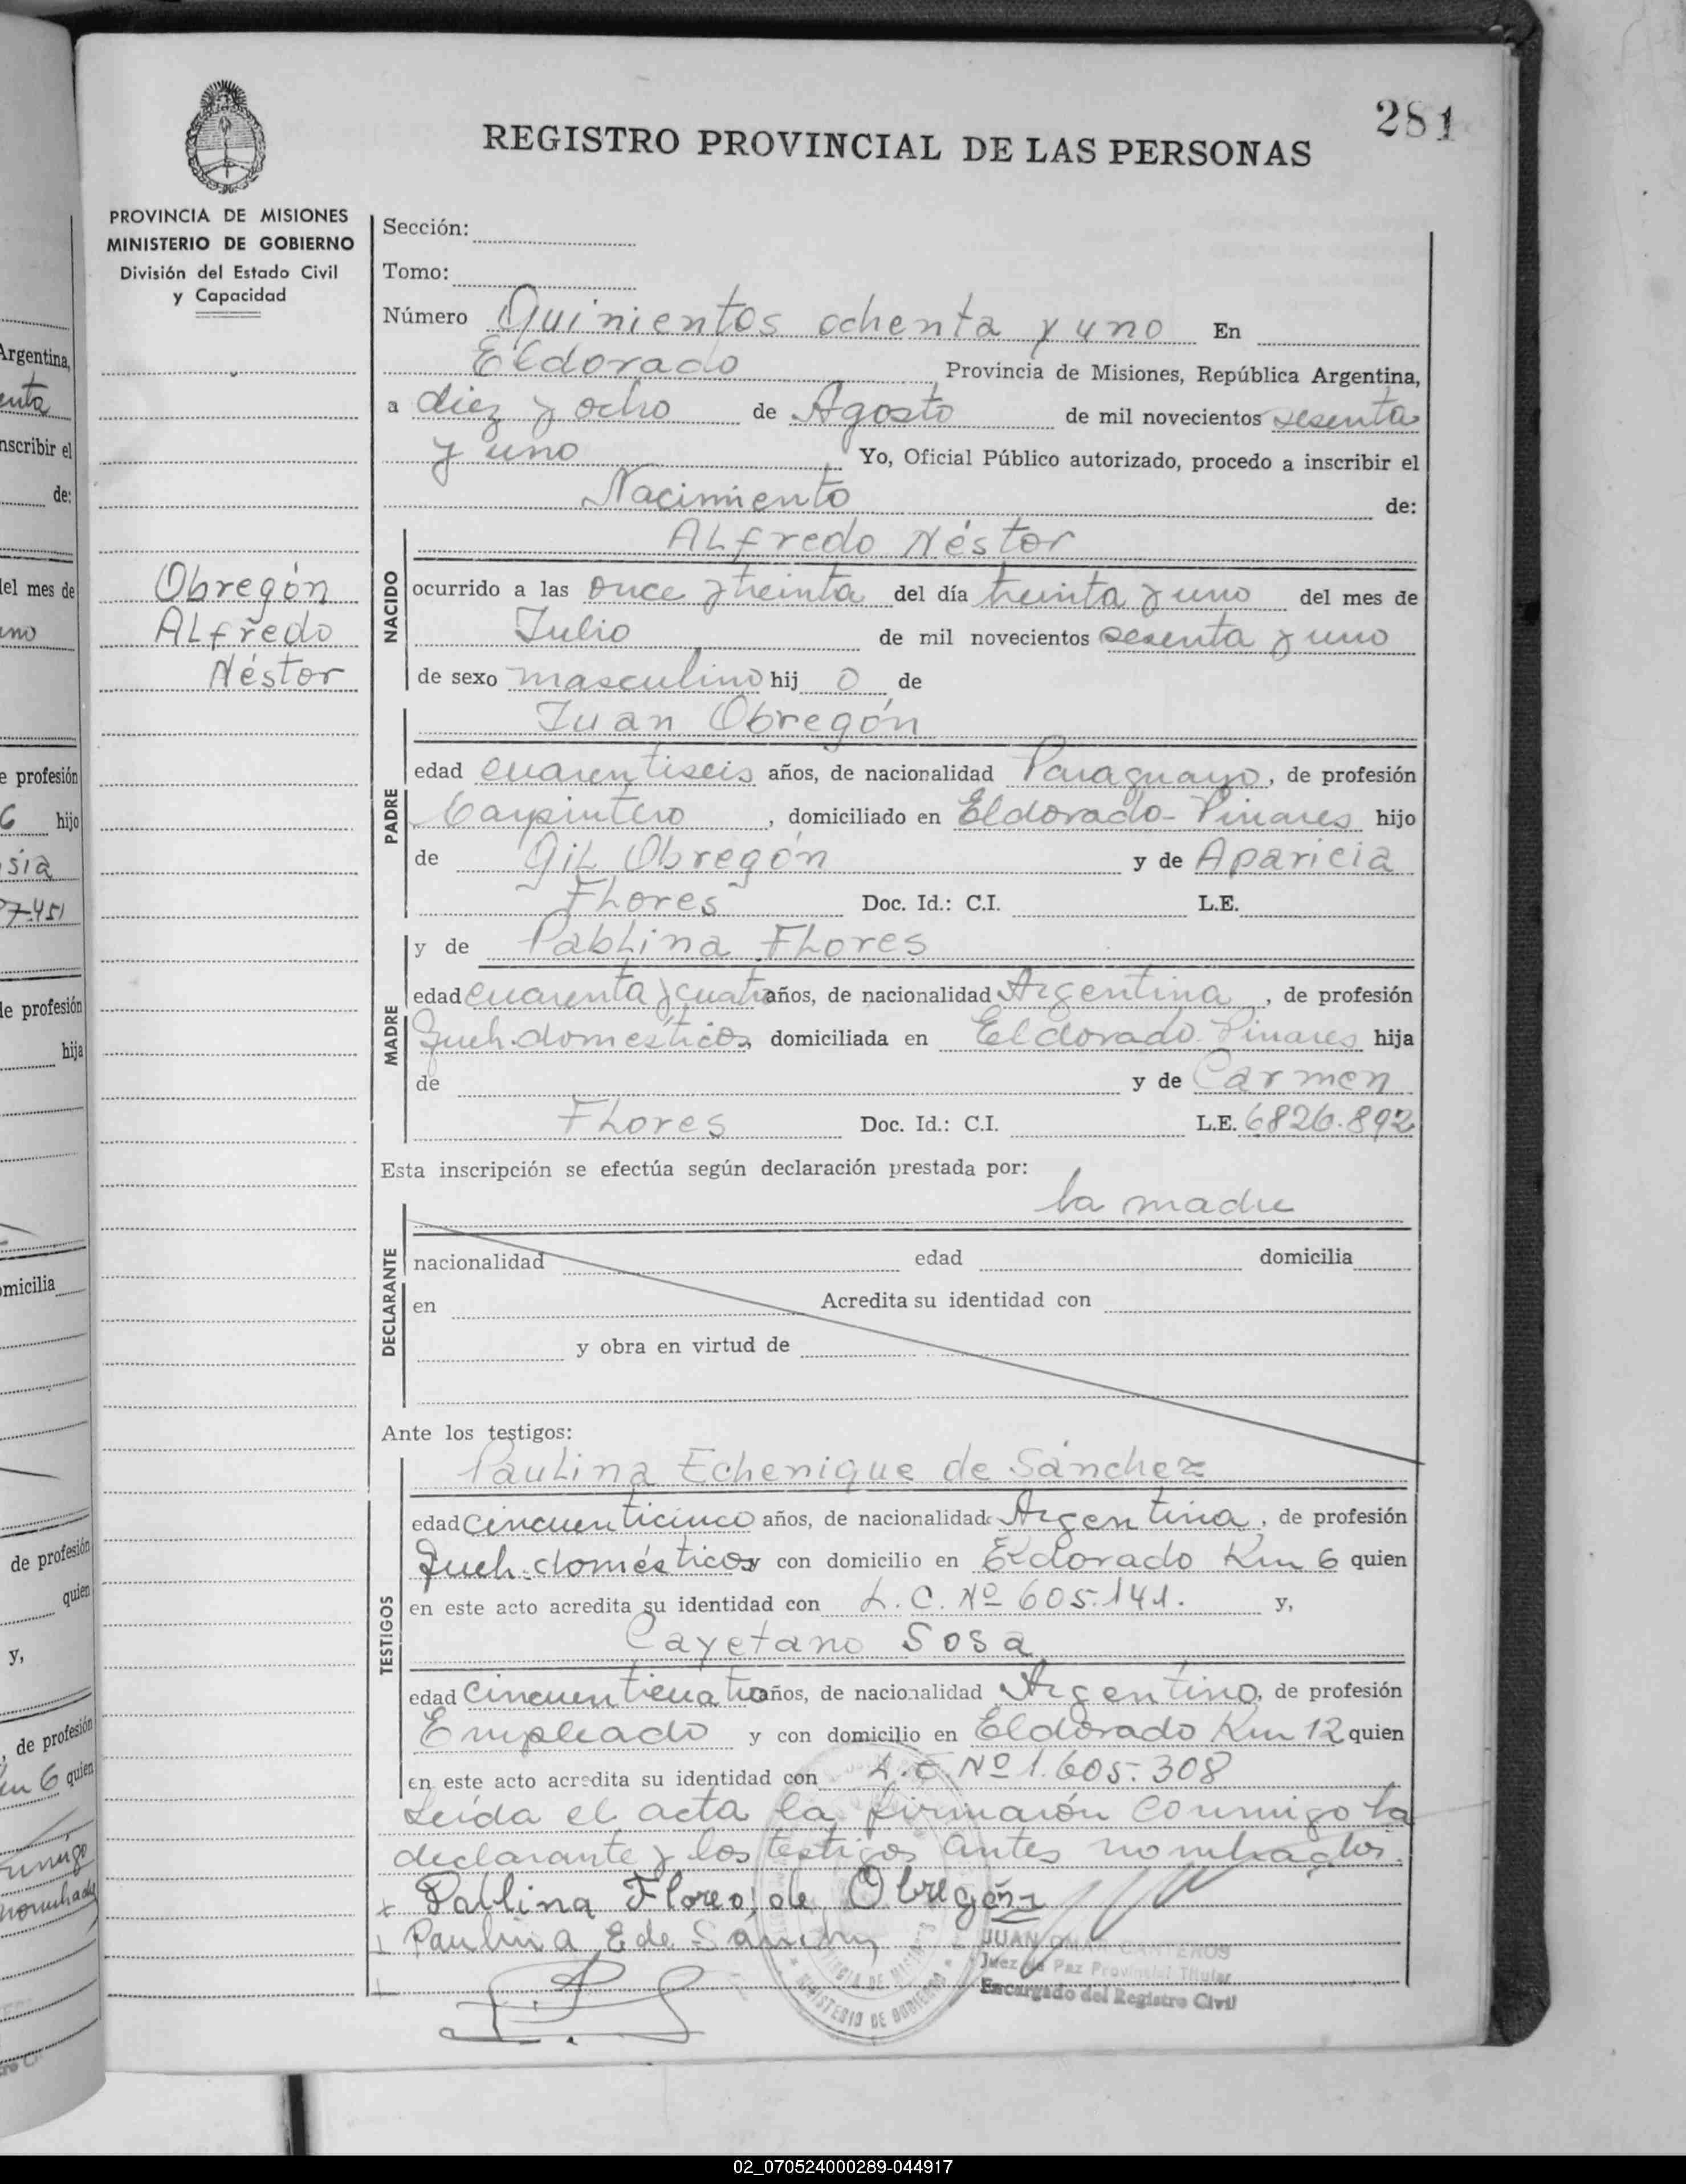 281
REGISTRO PROVINCIAL DE LAS PERSONAS
PROVINCIA DE MISIONES
MINISTERIO DE GOBIERNO
División del Estado Civil
y Capacidad
Obregón
ALfredo
Néstor
Sección:
Tomo:
Número Quinientos ochenta y uno En
Eldorado Provincia de Misiones, República Argentina,
a diez y ocho de Agosto de mil novecientos sesenta
y uno Yo, Oficial Público autorizado, procedo a inscribir el
Nacimiento de:
NACIDO
ALfredo Néstor
ocurrido a las once y treinta del día treinta y uno del mes de
Julio de mil novecientos sesenta y uno
de sexo masculino hij o de
PADRE
Juan Obregón
edad cuarentiseis años, de nacionalidad Paraguayo, de profesión
Carpintero, domiciliado en Eldorado-Pinares hijo
de Gil Obregón y de Aparicia
Flores Doc. Id.: C.I. L.E.
MADRE
y de Pablina Flores
edad cuarenta y cuatro años, de nacionalidad Argentina, de profesión
Queh. domésticos, domiciliada en Eldorado-Pinares hija
de y de Carmen
Flores Doc. Id.: C.I. L.E. 6826.892
Esta inscripción se efectúa según declaración prestada por:
la madre
DECLARANTE
nacionalidad edad domicilia
en Acredita su identidad con
y obra en virtud de
Ante los testigos:
TESTIGOS
Paulina Echenique de Sánchez
edad cincuenticinco años, de nacionalidad Argentina, de profesión
Queh. domésticos y con domicilio en Eldorado Km 6 quien
en este acto acredita su identidad con L.C. Nº 605.141. y,
Cayetano Sosa
edad cincuenticuatro años, de nacionalidad Argentino, de profesión
Empleado y con domicilio en Eldorado Km 12 quien
en este acto acredita su identidad con L.E. Nº 1.605.308
Leída el acta la firmarón conmigo la
declarante y los testigos antes nombrados.
Pablina Flores de Obregón
Paulina E de Sanchez
JUAN OMAR CANTEROS
Juez de Paz Provincial Titular
Encargado del Registro Civil
MINISTERIO DE GOBIERNO
Argentina,
enta
nscribir el
de:
del mes de
uno
e profesión
6 hijo
sia
7.451
de profesión
hija
omicilia
de profesión
quien
y,
, de profesión
Km 6 quien
02_070524000289-044917